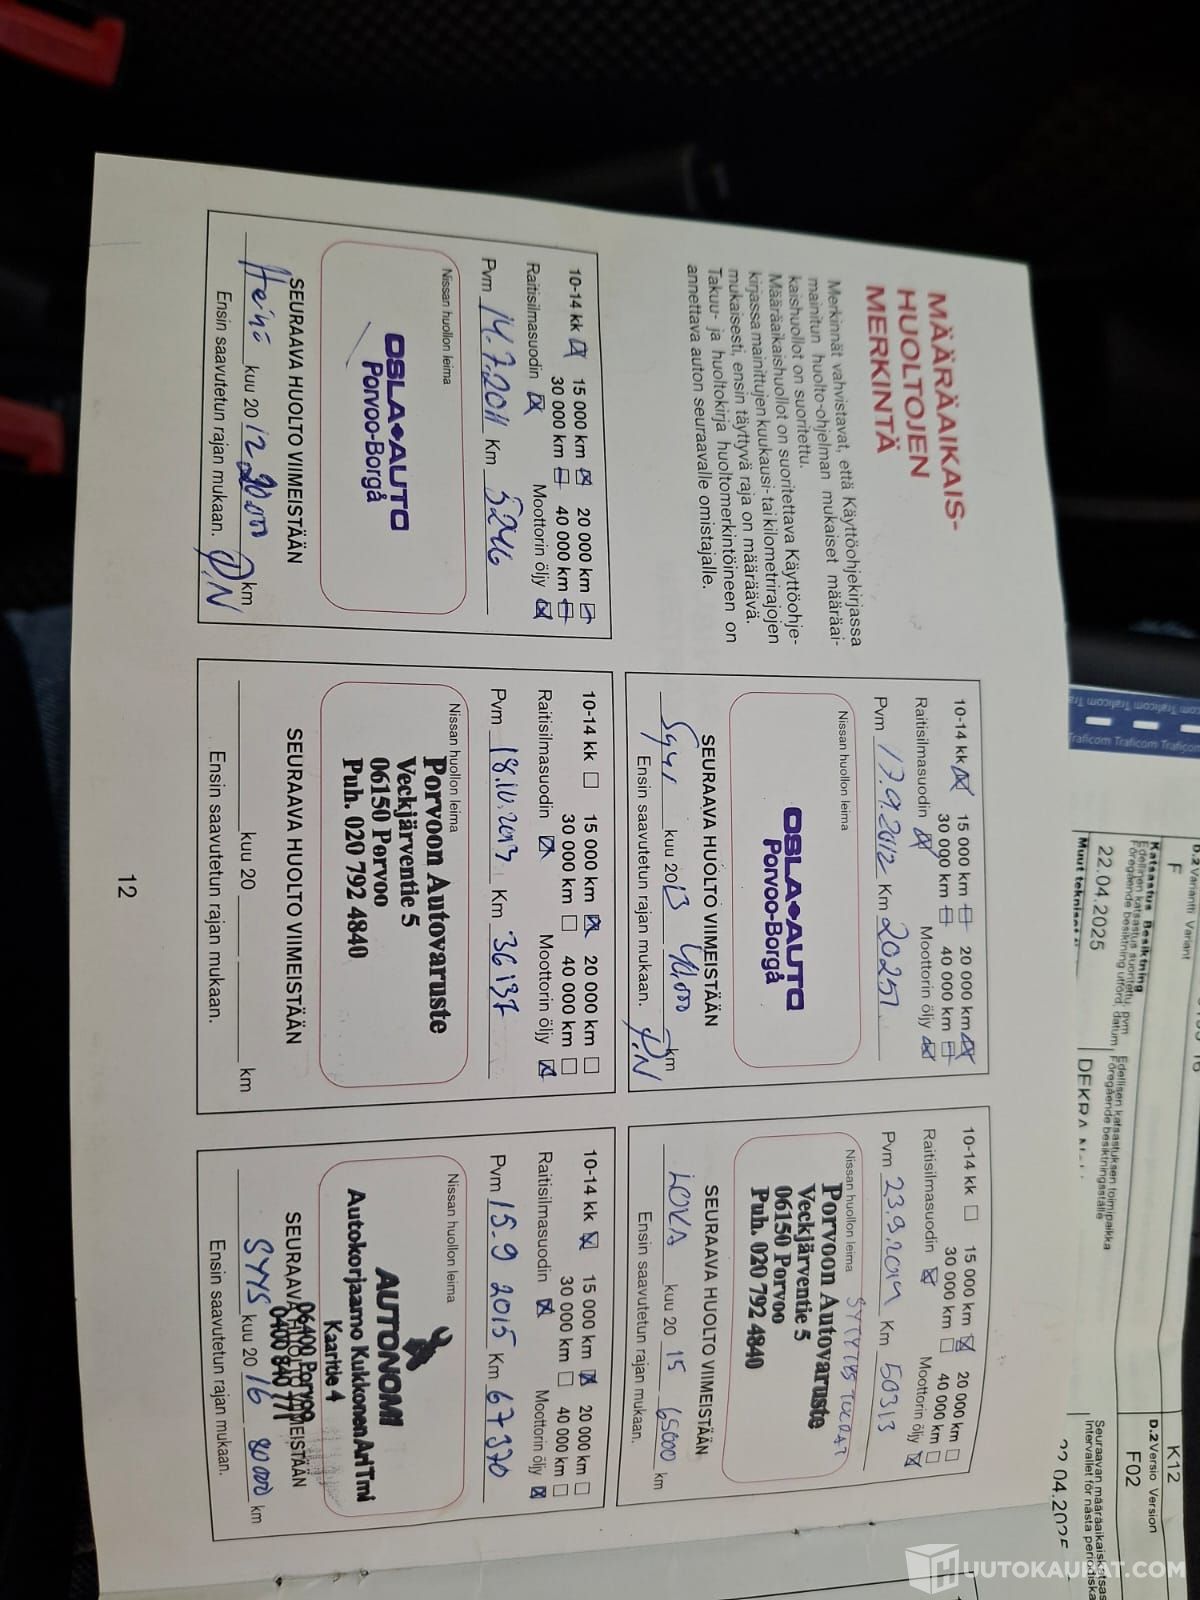 MÄÄRÄAIKAIS-
HUOLTOJEN
MERKINTÄ
Merkinnät vahvistavat, että Käyttöohjekirjassa
mainitun huolto-ohjelman mukaiset määräai-
kaishuollot on suoritettu.
Määräaikaishuollot on suoritettava Käyttöohje-
kirjassa mainittujen kuukausi- tai kilometrirajojen
mukaisesti, ensin täyttyvä raja on määräävä.
Takuu- ja huoltokirja huoltomerkintöineen on
annettava auton seuraavalle omistajalle.
10-14 kk ☒ 15 000 km ☒ 20 000 km
30 000 km 40 000 km
Raitisilmasuodin ☒ Moottorin öljy ☒
Pvm 14.7.2011 Km 5246
Nissan huollon leima
OSLA◆AUTO
Porvoo-Borgå
SEURAAVA HUOLTO VIIMEISTÄÄN
Heinä kuu 20 12 20.000 km
Ensin saavutetun rajan mukaan. P.N
10-14 kk ☒ 15 000 km 20 000 km ☒
30 000 km 40 000 km
Raitisilmasuodin ☒ Moottorin öljy ☒
Pvm 17.9.2012 Km 20251
Nissan huollon leima
OSLA◆AUTO
Porvoo-Borgå
SEURAAVA HUOLTO VIIMEISTÄÄN
Syys kuu 20 13 km
Ensin saavutetun rajan mukaan. P.N
10-14 kk ☐ 15 000 km ☒ 20 000 km ☐
30 000 km ☐ 40 000 km ☐
Raitisilmasuodin ☒ Moottorin öljy ☒
Pvm 18.10.2013 Km 36137
Nissan huollon leima
Porvoon Autovaruste
Veckjärventie 5
06150 Porvoo
Puh. 020 792 4840
SEURAAVA HUOLTO VIIMEISTÄÄN
kuu 20 km
Ensin saavutetun rajan mukaan.
10-14 kk ☐ 15 000 km ☒ 20 000 km ☐
30 000 km ☐ 40 000 km ☐
Raitisilmasuodin ☒ Moottorin öljy ☒
Pvm 23.9.2014 Km 50313
Nissan huollon leima SYTYTYS TULPAT
Porvoon Autovaruste
Veckjärventie 5
06150 Porvoo
Puh. 020 792 4840
SEURAAVA HUOLTO VIIMEISTÄÄN
LOKA kuu 20 15 65000 km
Ensin saavutetun rajan mukaan.
10-14 kk ☒ 15 000 km ☒ 20 000 km ☐
30 000 km ☐ 40 000 km ☐
Raitisilmasuodin ☒ Moottorin öljy ☒
Pvm 15.9 2015 Km 67370
Nissan huollon leima
AUTONOMI
Autokorjaamo Kukkonen Ari Tmi
Kaaritie 4
06400 Porvoo
0400 840 771
SEURAAVA HUOLTO VIIMEISTÄÄN
SYYS kuu 20 16 80000 km
Ensin saavutetun rajan mukaan.
12
Traficom Traficom Traficom
D.2 Variantti Variant
F
K12
D.2 Versio Version
F02
Katsastus Besiktning
Edellinen katsastus suoritettu, pvm
Föregående besiktning utförd, datum
22.04.2025
Edellisen katsastuksen toimipaikka
Föregående besiktningsställe
DEKRA
Seuraavan määräaikaiskatsas
Intervallet för nästa periodiska
22.04.2025
HUUTOKAUPAT.COM